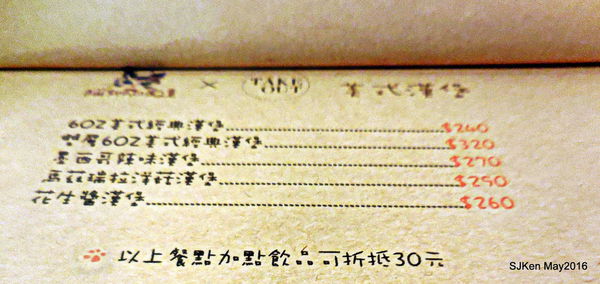 × TAKE OUT 美式漢堡
6OZ美式經典漢堡 $240
雙層6OZ美式經典漢堡 $320
墨西哥辣味漢堡 $270
馬茲瑞拉洋菇漢堡 $250
花生醬漢堡 $260
以上餐點加點飲品可折抵30元
SJKen May2016